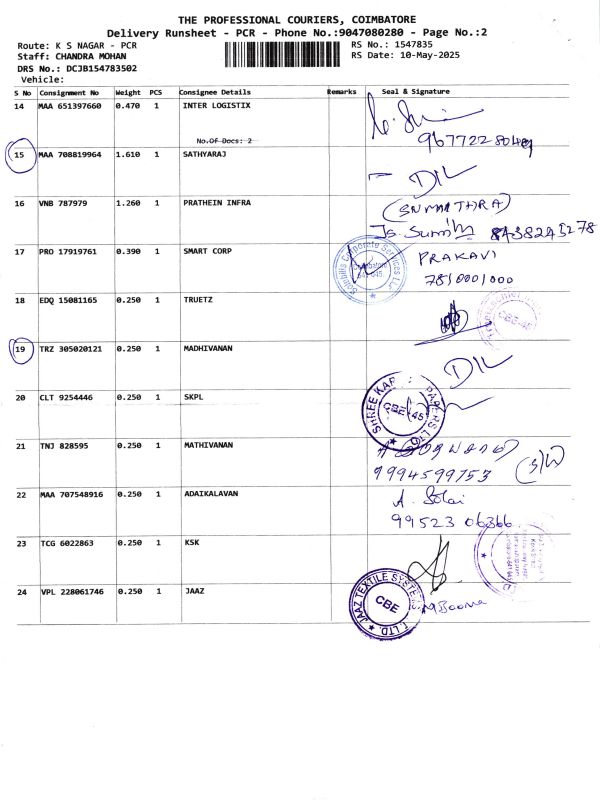 THE PROFESSIONAL COURIERS, COIMBATORE
Delivery Runsheet - PCR - Phone No.:9047080280 - Page No.:2
Route: K S NAGAR - PCR RS No.: 1547835
Staff: CHANDRA MOHAN RS Date: 10-May-2025
DRS No.: DCJB154783502
Vehicle:
S No Consignment No Weight PCS Consignee Details Remarks Seal & Signature
14 MAA 651397660 0.470 1 INTER LOGISTIX
No.Of Docs: 2
9677228049
15 MAA 708819964 1.610 1 SATHYARAJ
DIL
16 VNB 787979 1.260 1 PRATHEIN INFRA
(SUMATHRA)
8438243278
17 PRO 17919761 0.390 1 SMART CORP
Corporate Services LLP
PRAKAVI
7810001000
18 EDQ 15081165 0.250 1 TRUETZ
CBE-45
19 TRZ 305020121 0.250 1 MADHIVANAN
DIL
20 CLT 9254446 0.250 1 SKPL
SHREE KAR PAPERS LTD
CBE 45
21 TNJ 828595 0.250 1 MATHIVANAN
9994599753
22 MAA 707548916 0.250 1 ADAIKALAVAN
99523 06366
23 TCG 6022863 0.250 1 KSK
24 VPL 228061746 0.250 1 JAAZ
JAAZ TEXTILE SYSTEMS LTD.
CBE